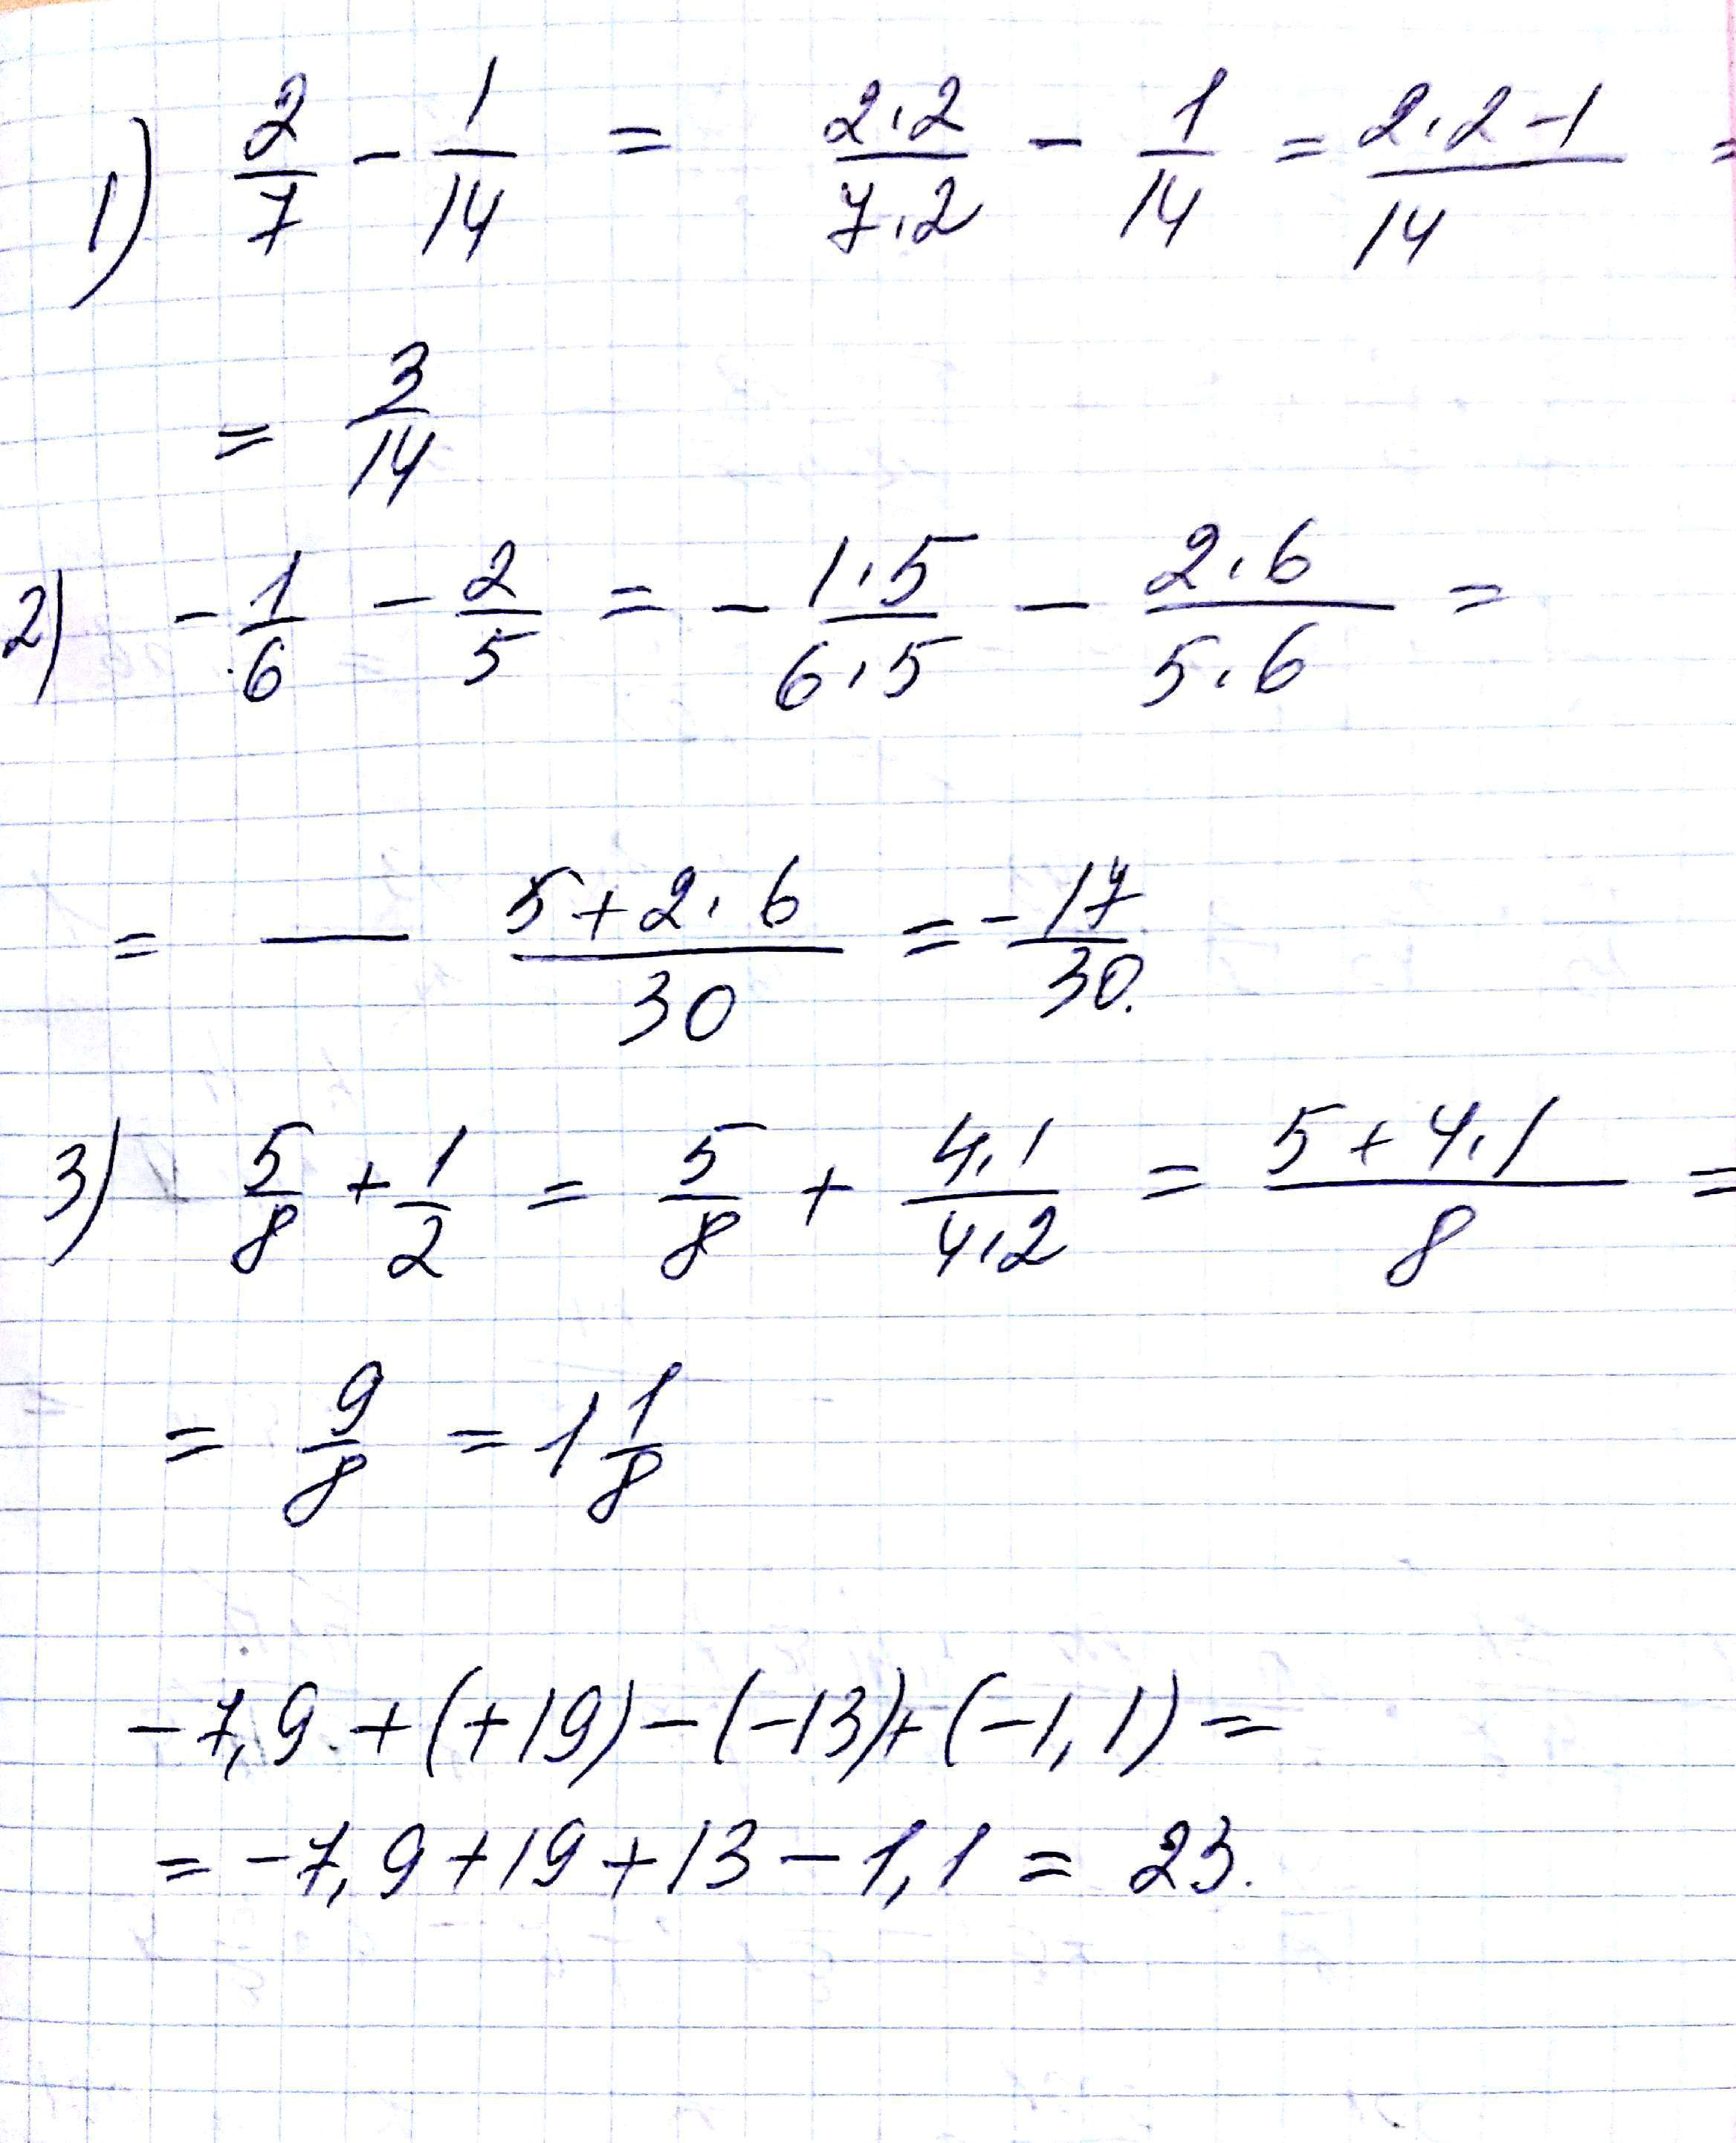 1) 2/7 - 1/14 = 2·2/7·2 - 1/14 = 2·2-1/14 =
= 3/14
2) -1/6 - 2/5 = -1·5/6·5 - 2·6/5·6 =
= - 5+2·6/30 = -17/30.
3) 5/8 + 1/2 = 5/8 + 4·1/4·2 = 5+4·1/8 =
= 9/8 = 1 1/8
-7,9 + (+19) - (-13) + (-1,1) =
= -7,9 + 19 + 13 - 1,1 = 23.